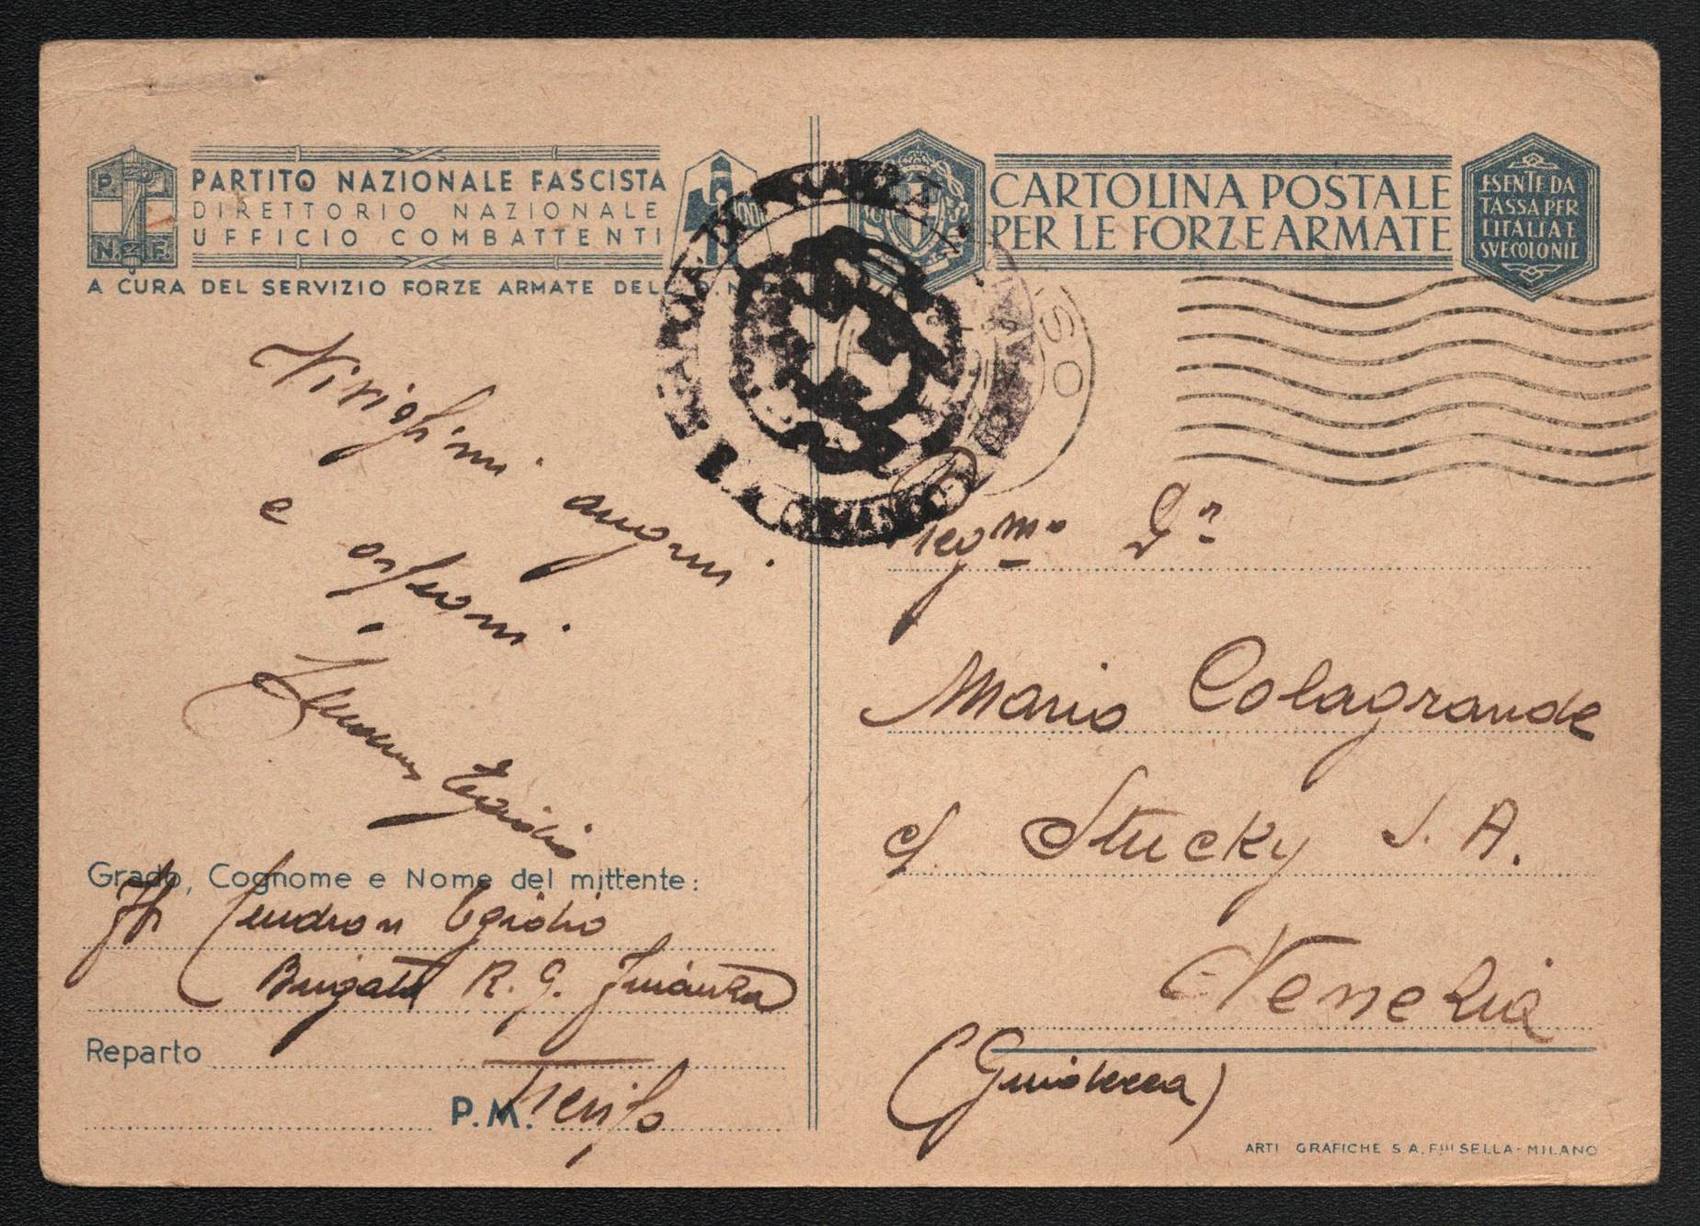 P. N. F.
PARTITO NAZIONALE FASCISTA
DIRETTORIO NAZIONALE
UFFICIO COMBATTENTI
A CURA DEL SERVIZIO FORZE ARMATE DEL P.N.F.
CARTOLINA POSTALE
PER LE FORZE ARMATE
ESENTE DA
TASSA PER
L'ITALIA E
SVE COLONIE
auguri
e
Egidio
Grado, Cognome e Nome del mittente:
Cendron Egidio
Brigata R. G. Finanza
Reparto
P. M. Treviso
Preg.mo Sr
Mario Colagrande
c/ Stucky S. A.
Venezia
(Giudecca)
ARTI GRAFICHE S.A. Flli SELLA - MILANO